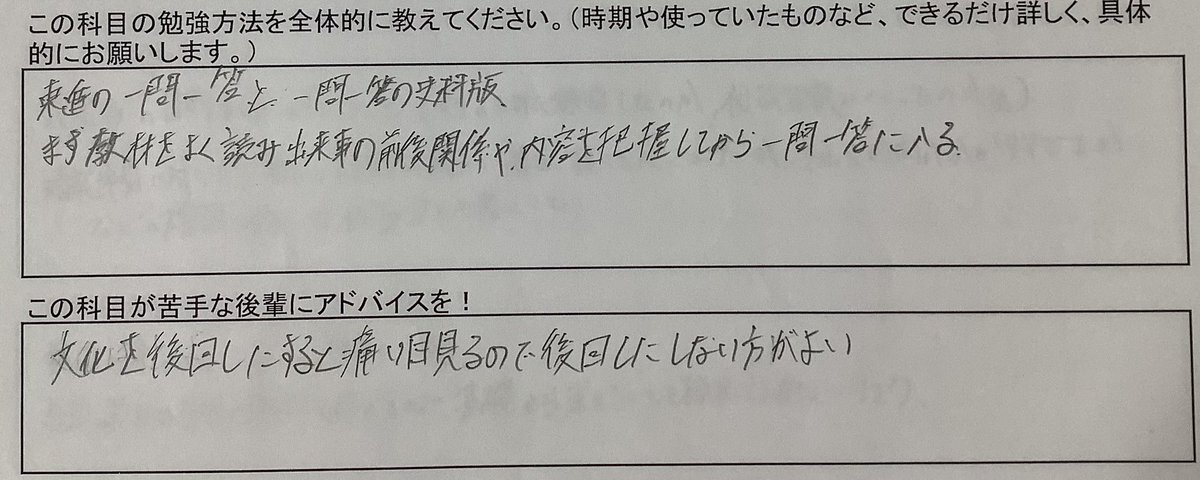 この科目の勉強方法を全体的に教えてください。(時期や使っていたものなど、できるだけ詳しく、具体
的にお願いします。)
東進の一問一答と、一問一答の史料版
まず教材をよく読み出来事の前後関係や、内容を把握してから一問一答に入る。
この科目が苦手な後輩にアドバイスを!
文化を後回しにすると痛い目見るので後回しにしない方がよい